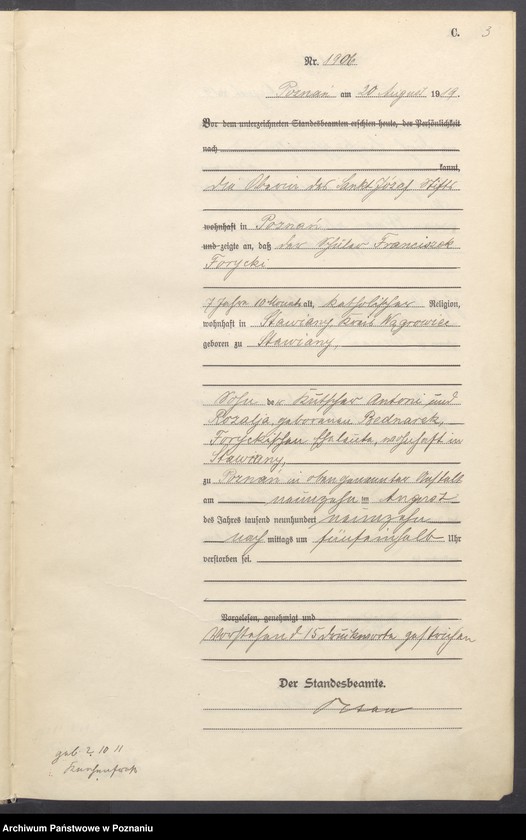 C. 3
Nr. 1906
Poznań am 20 August 1919.
Vor dem unterzeichneten Standesbeamten erschien heute, der Persönlichkeit
nach
kannt,
die Oberin des Sankt Józef Stifts
wohnhaft in Poznań
und zeigte an, daß der Schüler Franciszek
Forycki
7 Jahre 10 Monate alt, katholischer Religion,
wohnhaft in Stawiany, Kreis Wągrowiec
geboren zu Stawiany,
Sohn der Kutscher Antoni und
Rozalja, geborenen Bednarek,
Foryckischen Eheleute, wohnhaft in
Stawiany,
zu Poznań in obengenannter Anstalt
am neunzehn im August
des Jahres tausend neunhundert neunzehn
nach mittags um fünfeinhalb Uhr
verstorben sei.
Vorgelesen, genehmigt und
Vorstehend 15 Druckworte gestrichen
Der Standesbeamte.
geb. 2. 10 11
Archiwum Państwowe w Poznaniu